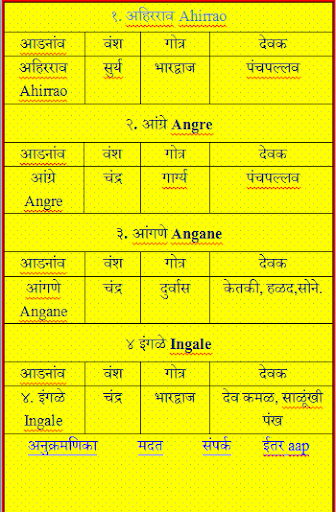 १. अहिरराव Ahirrao
आडनांव वंश गोत्र देवक
अहिरराव सुर्य भारद्वाज पंचपल्लव
Ahirrao
२. आंग्रे Angre
आडनांव वंश गोत्र देवक
आंग्रे चंद्र गार्ग्य पंचपल्लव
Angre
३. आंगणे Angane
आडनांव वंश गोत्र देवक
आंगणे चंद्र दुर्वास केतकी, हळद,सोने.
Angane
४ इंगळे Ingale
आडनांव वंश गोत्र देवक
४. इंगळे चंद्र भारद्वाज देव कमळ, साळूंखी
Ingale पंख
अनुक्रमणिका मदत संपर्क ईतर aap